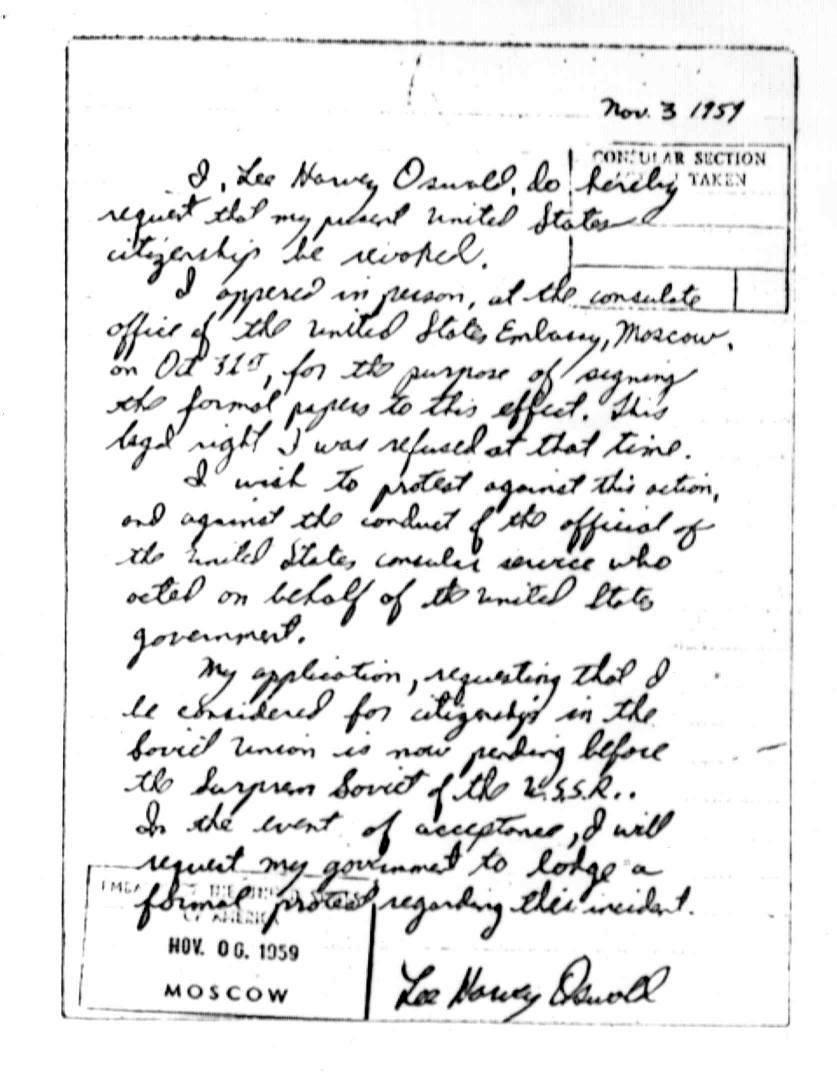 Nov. 3 1959
CONSULAR SECTION
TAKEN
I, Lee Harvey Oswald, do hereby
request that my present united States
citizenship be revoked.
I appered in person, at the consulate
office of the united States Embassy, Moscow,
on Oct 31st, for the purpose of signing
the formal papers to this effect. This
legal right I was refused at that time.
I wish to protest against this action,
and against the conduct of the official of
the united States consular service who
acted on behalf of the united States
government.
My application, requesting that I
be considered for citizenship in the
Soviet Union is now pending before
the Surprem Soviet of the U.S.S.R..
In the event of acceptance, I will
request my government to lodge a
formal protest regarding this incident.
OF AMERICA
NOV. 06. 1959
MOSCOW
Lee Harvey Oswald